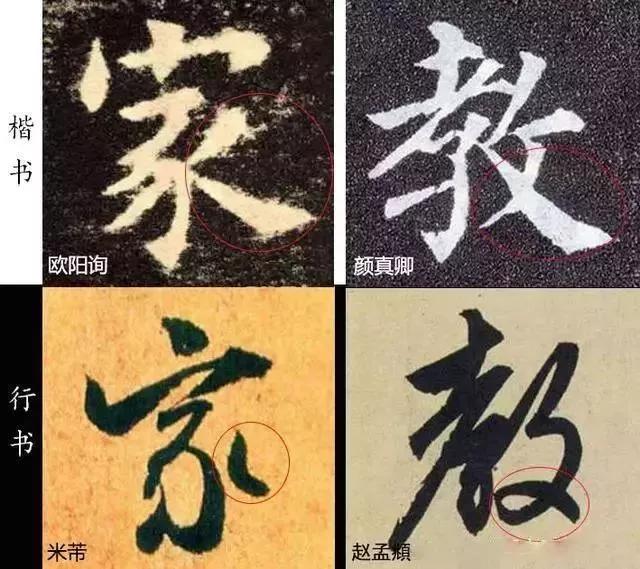 楷书
家
欧阳询
教
颜真卿
行书
家
米芾
教
赵孟頫